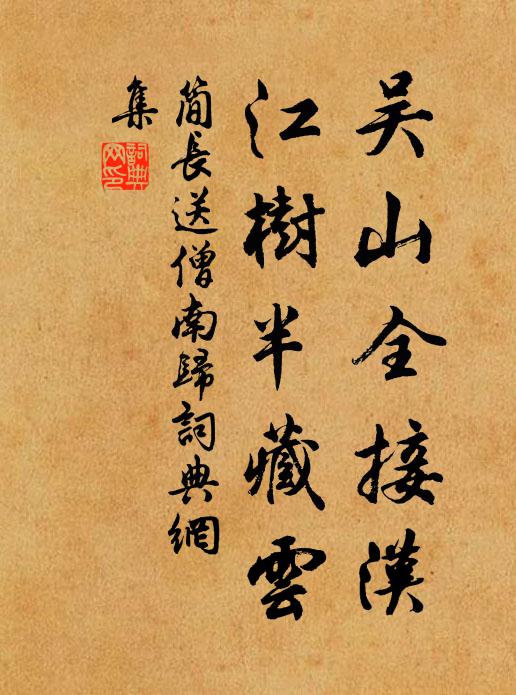 吴山全接漢
江樹半藏雲
簡長送僧南歸詞典網
集
詞典網印